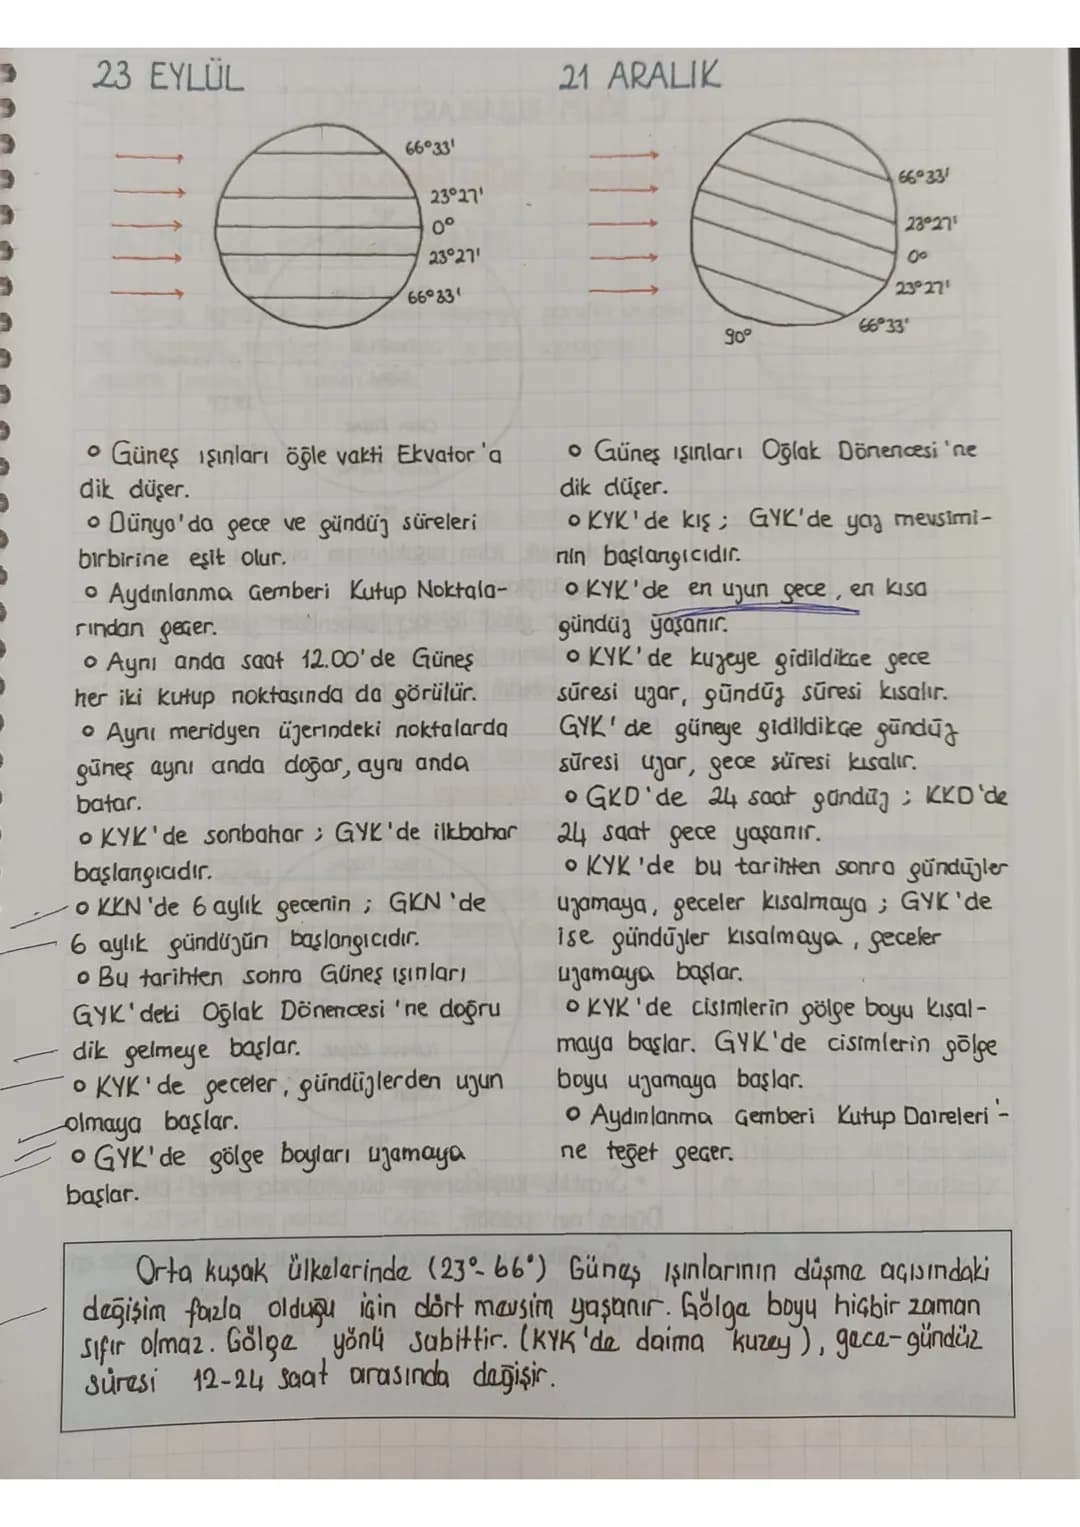 23 EYLÜL
66°33'
23°27'
0°
23°27'
66°33'
° Güneş ışınları öğle vakti Ekvator'a
dik düşer.
° Dünya'da gece ve gündüz süreleri
birbirine eşit olur.
° Aydınlanma Çemberi Kutup Noktala-
rından geçer.
° Aynı anda saat 12.00'de Güneş
her iki kutup noktasında da görülür.
° Aynı meridyen üzerindeki noktalarda
güneş aynı anda doğar, aynı anda
batar.
° KYK'de sonbahar ; GYK'de ilkbahar
başlangıcıdır.
° KKN'de 6 aylık gecenin ; GKN'de
6 aylık gündüzün başlangıcıdır.
° Bu tarihten sonra Güneş ışınları
GYK'deki Oğlak Dönencesi'ne doğru
dik gelmeye başlar.
° KYK'de geceler, gündüzlerden uzun
olmaya başlar.
° GYK'de gölge boyları uzamaya
başlar.
21 ARALIK
66°33'
23°27'
0°
23°27'
66°33'
90°
° Güneş ışınları Oğlak Dönencesi'ne
dik düşer.
° KYK'de kış ; GYK'de yaz mevsimi-
nin başlangıcıdır.
° KYK'de en uzun gece, en kısa
gündüz yaşanır.
° KYK'de kuzeye gidildikçe gece
süresi uzar, gündüz süresi kısalır.
GYK'de güneye gidildikçe gündüz
süresi uzar, gece süresi kısalır.
° GKD'de 24 saat gündüz ; KKD'de
24 saat gece yaşanır.
° KYK'de bu tarihten sonra gündüzler
uzamaya, geceler kısalmaya ; GYK'de
ise gündüzler kısalmaya, geceler
uzamaya başlar.
° KYK'de cisimlerin gölge boyu kısal-
maya başlar. GYK'de cisimlerin gölge
boyu uzamaya başlar.
° Aydınlanma Çemberi Kutup Daireleri'-
ne teğet geçer.
Orta kuşak ülkelerinde (23°-66°) Güneş ışınlarının düşme açısındaki
değişim fazla olduğu için dört mevsim yaşanır. Gölge boyu hiçbir zaman
sıfır olmaz. Gölge yönü sabittir. (KYK'de daima kuzey), gece-gündüz
süresi 12-24 saat arasında değişir.